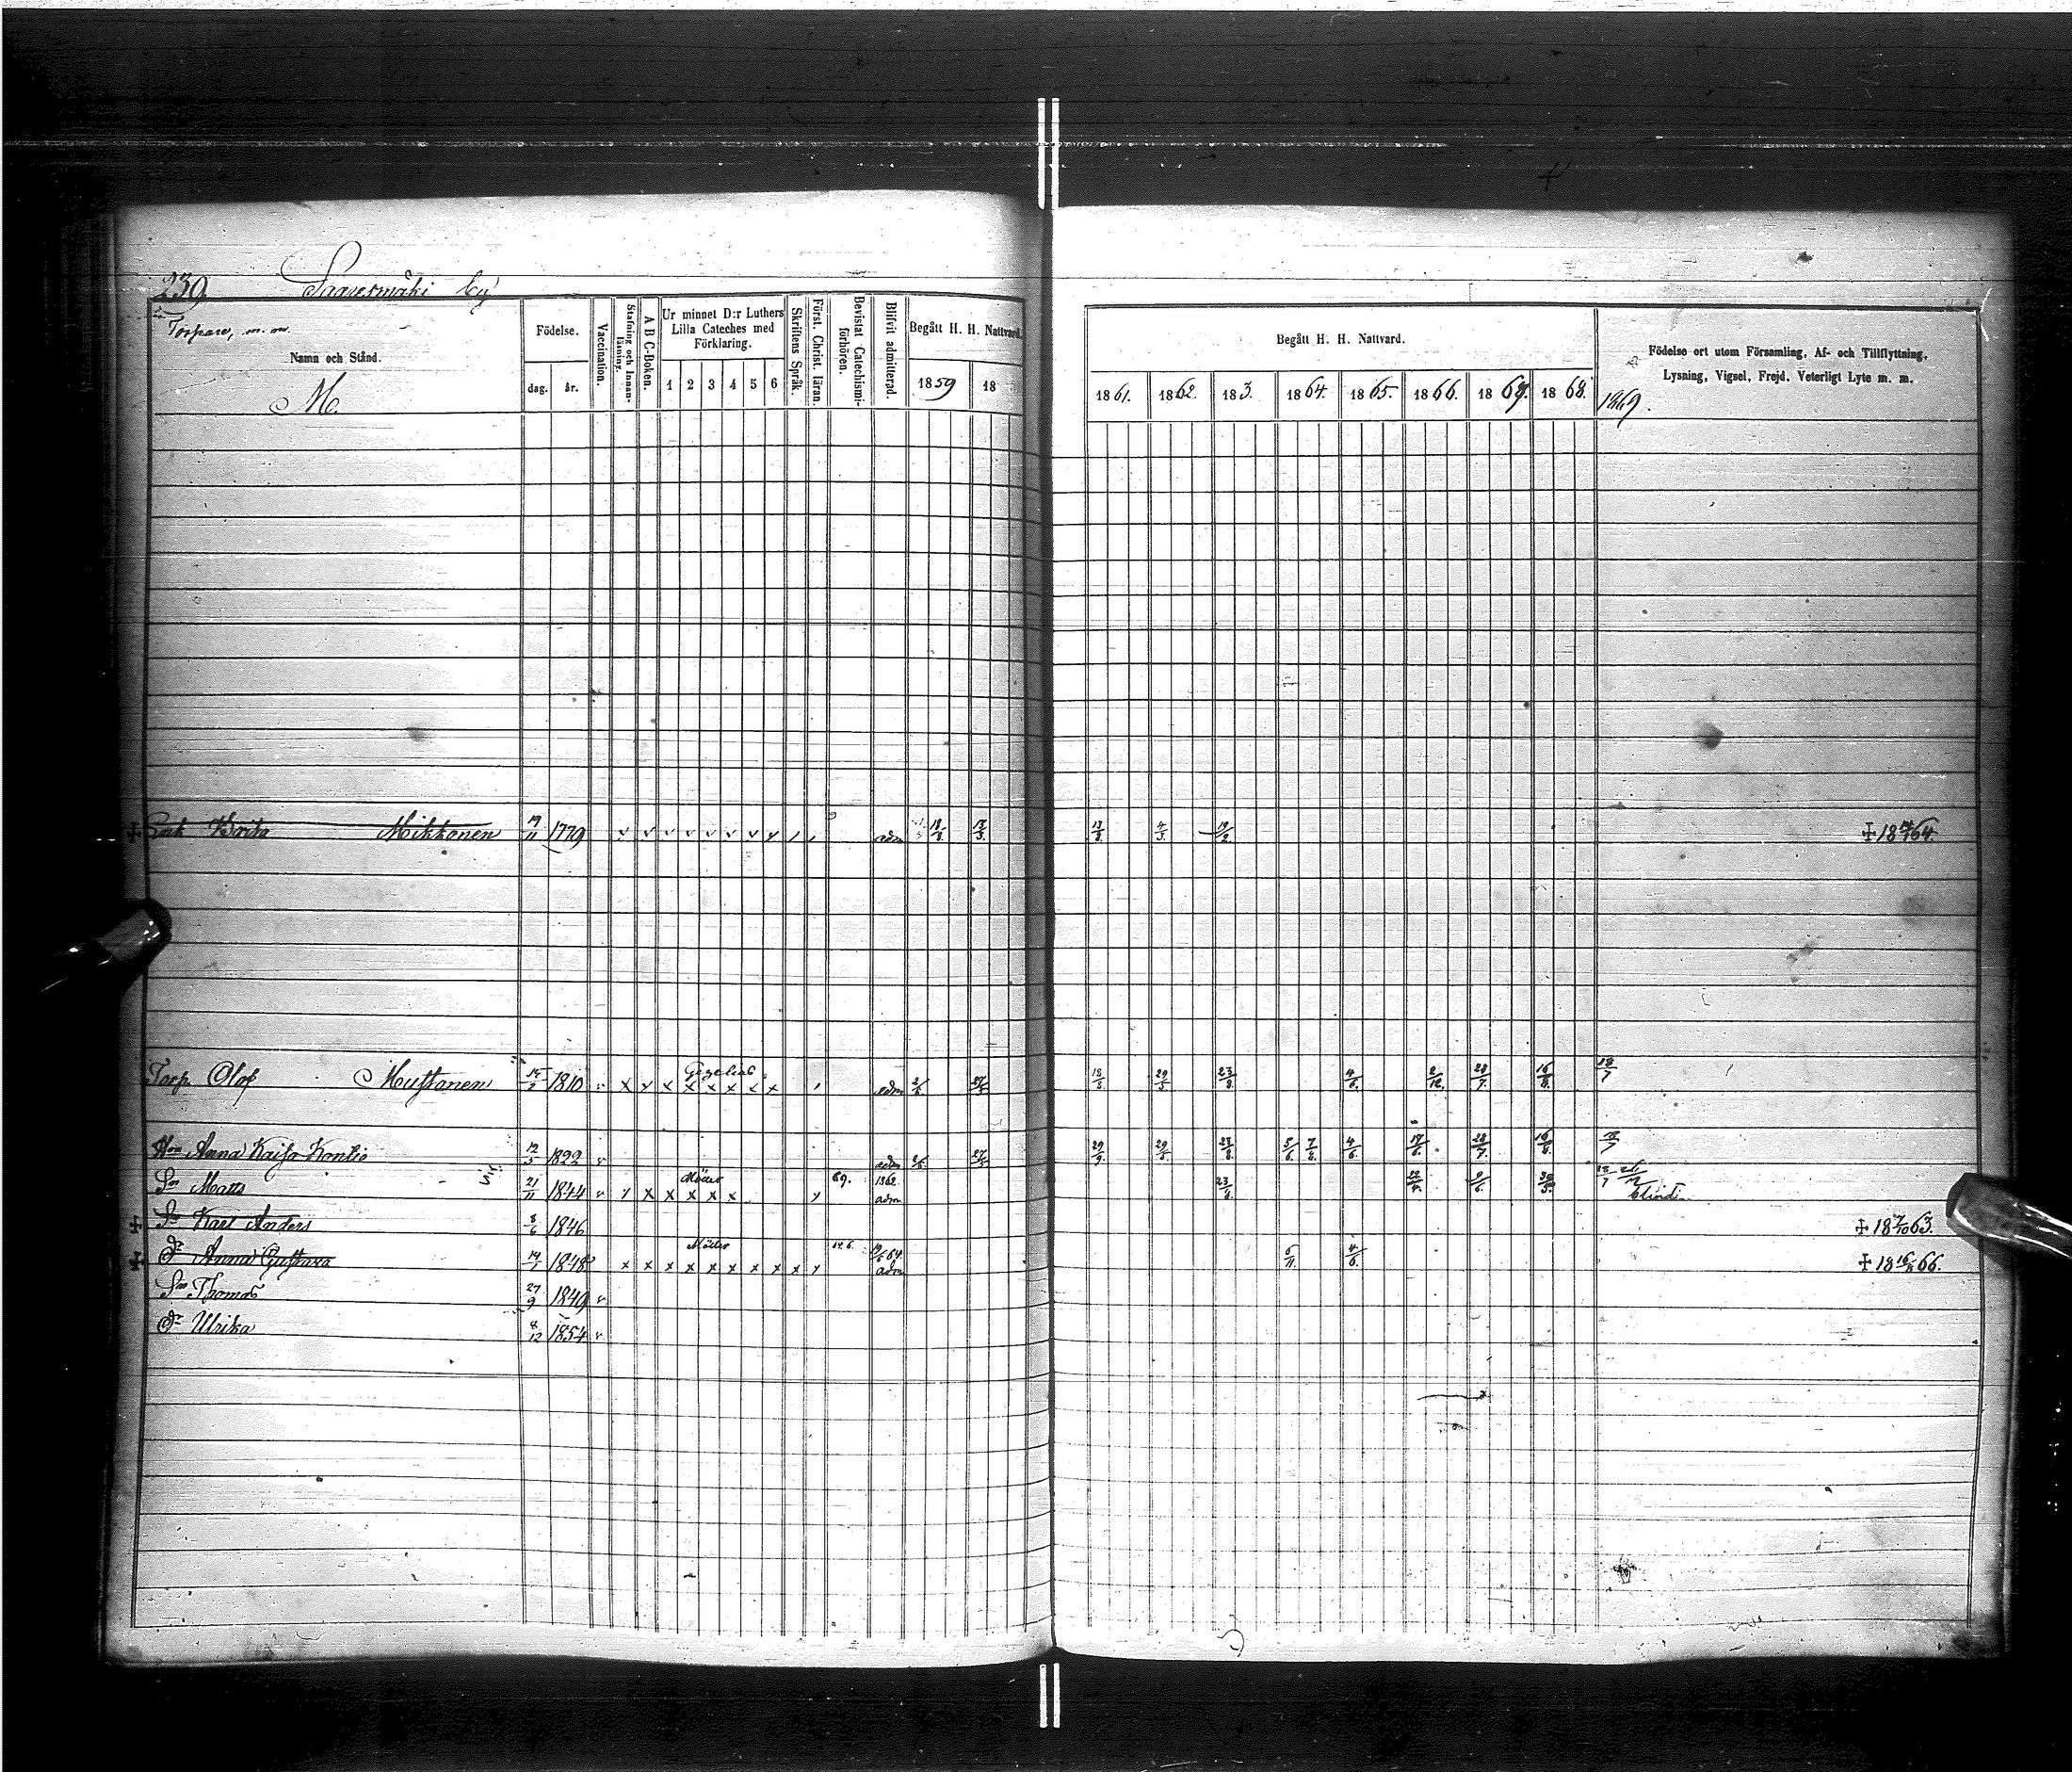 239. Saavesmäki by
Torpare, m. m.
Namn och Stånd.
M.
Födelse.
dag. år.
Vaccination.
Stafning och Innanläsning.
A B C-Boken.
Ur minnet D:r Luthers Lilla Cateches med Förklaring.
1 2 3 4 5 6
Skriftens Språk.
Först. Christ. läran.
Bevistat Catechismiförhören.
Blifvit admitterad.
Begått H. H. Nattvard.
1859 18
Begått H. H. Nattvard.
1861. 1862. 183. 1864. 1865. 1866. 1867. 1868.
Födelse ort utom Församling, Af- och Tillflyttning, Lysning, Vigsel, Frejd, Veterligt Lyte m. m.
1869.
Enk Brita Mikkonen 19/11 1779 adm 18/3. 13/3. 13/3. 4/5. 19/2. 18 64.
Torp. Olof Mustonen 1810 adm 2/6. 27/5 18/3 29/5 23/8. 4/6. 2/12. 28/7. 16/8. 18/7
Hu Anna Kaisa Kontio 12/5 1822 adm 2/6. 27/5 29/9. 29/5. 23/8. 5/6. 7/8. 4/6. 17/6. 28/7. 16/8. 18/7
Sn Matts 21/11 1844 Möller 69. 1862 adm 23/8. 22/4. 9/6. 18/7 blind.
Sn Karl Anders 8/6 1846 18 7/10 63.
Dr Anna Gustava 14/7 1848 Möller 64 adm 5/11. 4/6. 18 16/5 66.
Sn Thomas 27/9 1849
Dr Ulrika 8/12 1854